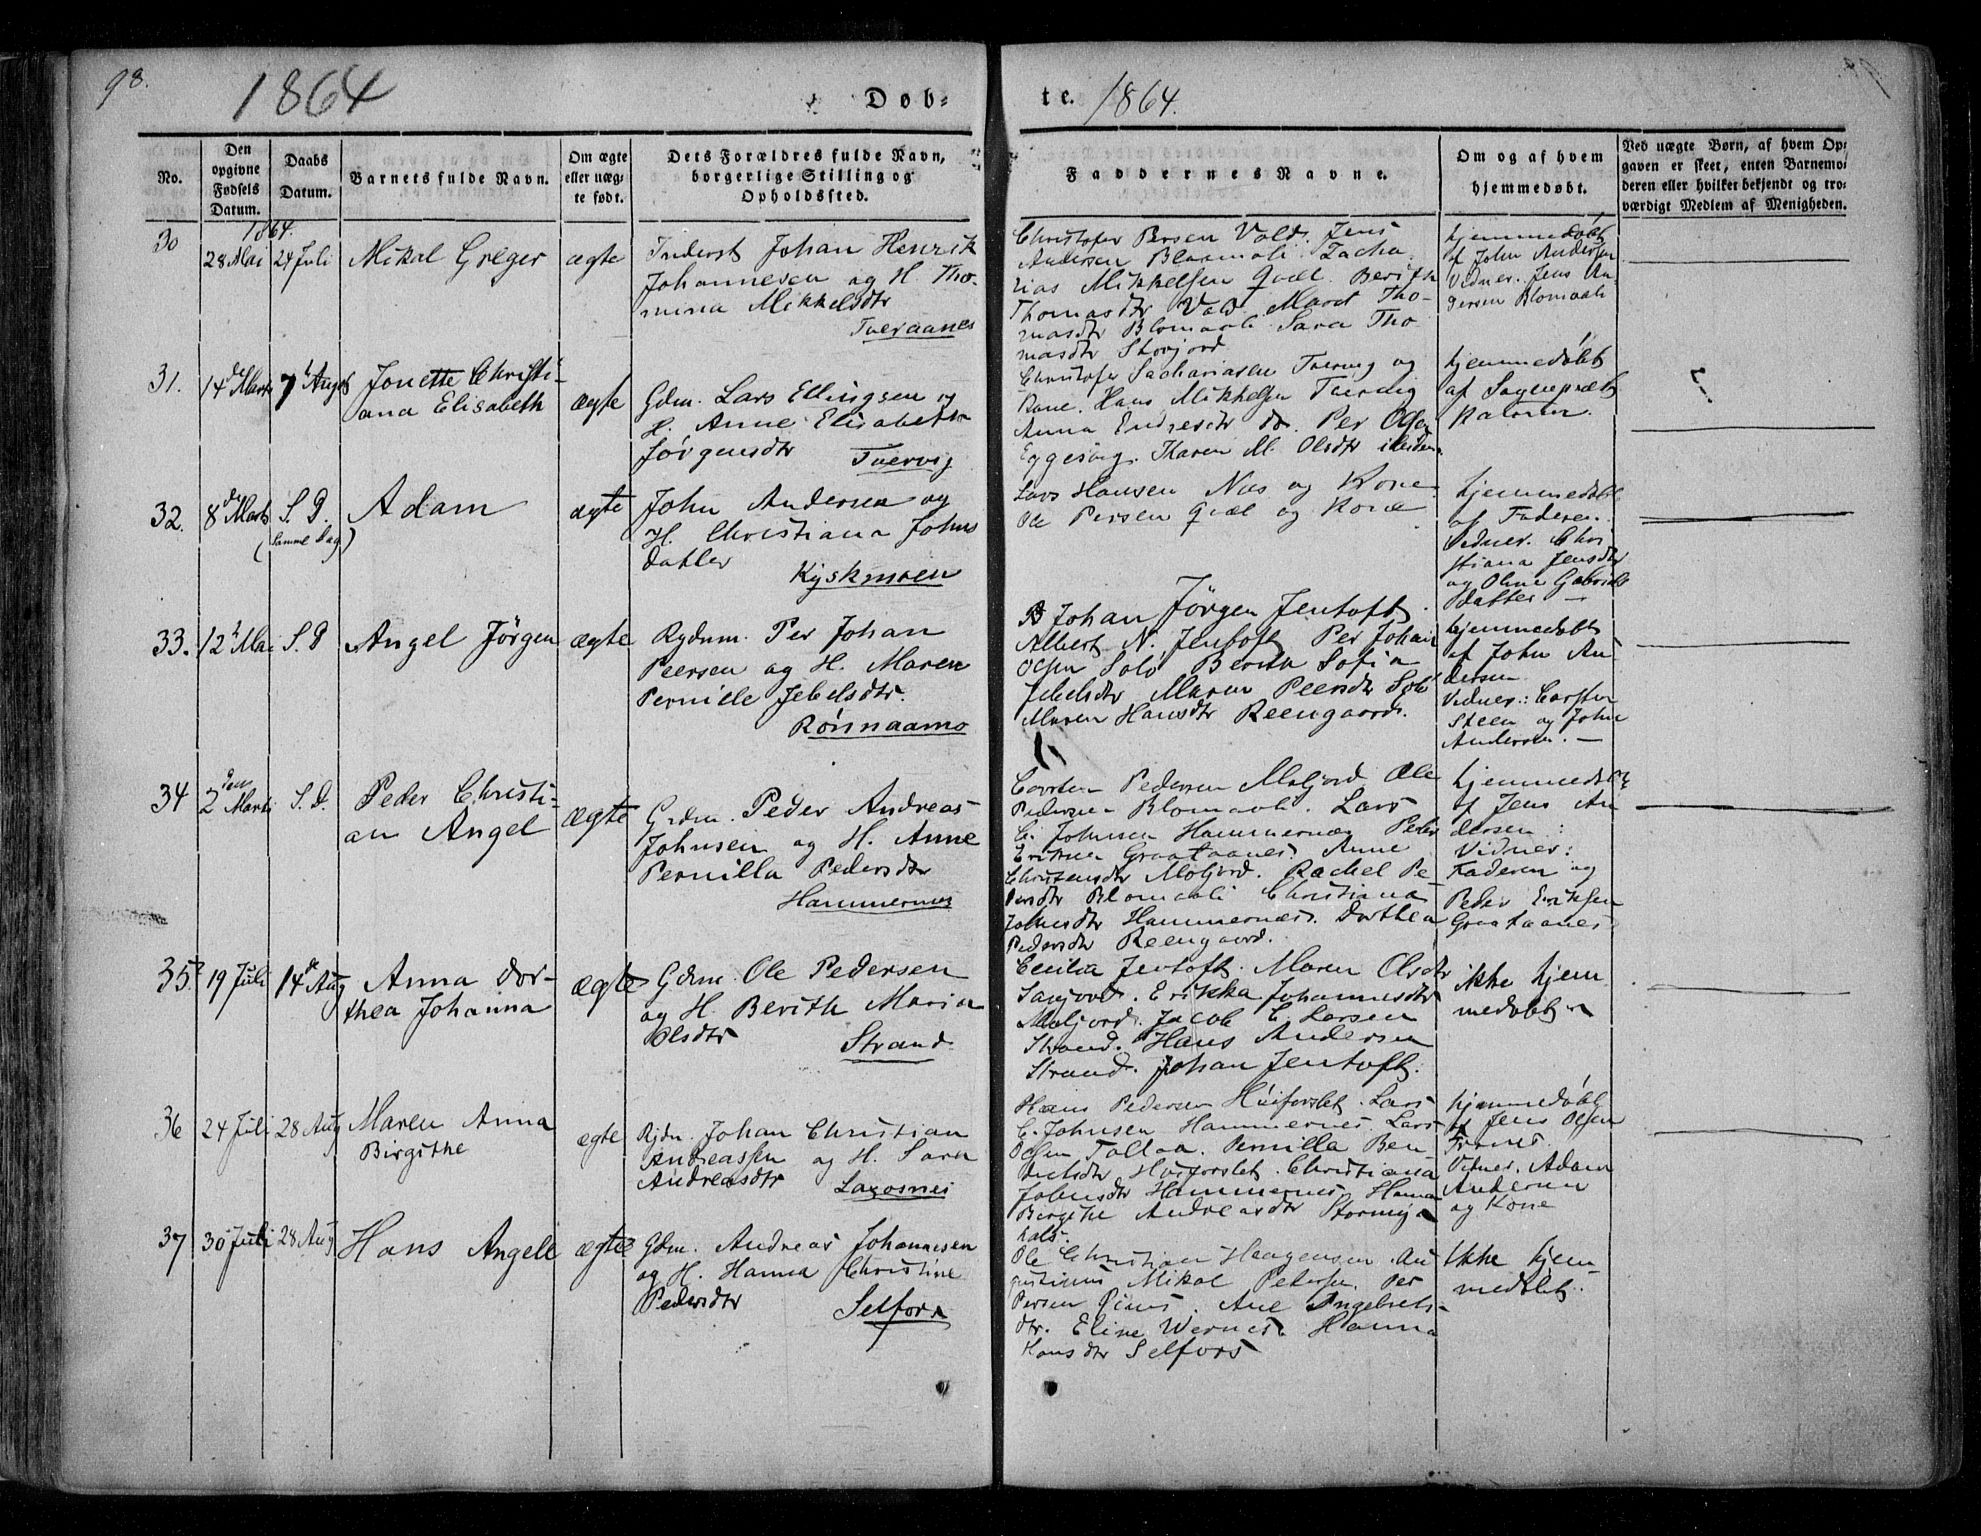 98.
1864
Døb-
te.
1864.
No.
Den opgivne Fødsels Datum.
Daabs Datum.
Barnets fulde Navn.
Om ægte eller uægte født.
Dets Forældres fulde Navn, borgerlige Stilling og Opholdssted.
Faddernes Navne.
Om og af hvem hjemmedøbt.
Ved uægte Børn, af hvem Op-
gaven er skeet, enten Barnemo-
deren eller hvilker bekjendt og tro-
værdigt Medlem af Menigheden.
1864.
30
28 Mai
24 Juli
Mikal Greger
ægte
Inderst Johan Henrik
Johannesen og H. Tho-
mina Mikkelsdtr
Tveraanes
Christofer Persen Vold. Jens
Andersen Blaamoli Zacha
rias Mikkelsen Qvæl Berith
Thomasdtr Vold Maret Tho-
masdtr Blomaali Sara Tho
masdtr Storjord
hjemmedøbt
af John Andersen
Vidner. Jens An
dersen Blomaali
31.
14de Marts
7 Augst
Jonette Christi-
ana Elisabeth
ægte
Gdm. Lars Ellingsen og
H. Anne Elisabeth
Jørgensdtr
Tvervig
Christofer Sachariasen Tvervig og
Kone. Hans Mikkelsen Tvervig
Anna Endresdtr do. Per Olsen
Eggesvig. Karen M. Olsdtr
hjemmedøbt
af Sognepræst
32.
8de Marts
S. D.
(samme Dag)
Adam
ægte
John Andersen og
H. Christiana Johns
datter
Kyskmoen
Lars Hansen Næs og Kone
Ole Persen Qvæl og Kone
hjemmedøbt
af Faderen.
Vidner. Chri
stiana Jensdtr
og Oline Gabriels
datter —
33.
12 Mai
S. D
Angel Jørgen
ægte
Rydnm. Per Johan
Peersen og H. Maren
Pernille Jebelsdtr.
Rønnaamo
Johan Jørgen Jentoft
Albert N. Jentoft Per Johan
Olsen Solø Berith Sofia
Jebelsdtr Maren Peersdtr Solø
Maren Hansdtr Reengaard.
hjemmedøbt
af John An
dersen
Vidner: Carsten
Steen og John
Andersen. —
34
2den Marts
S. D.
Peder Christi-
an Angel
ægte
Grdm. Peder Andreas
Johnsen og H. Anne
Pernilla Pedersdtr
Hammernes
Carsten Pedersen Moljord Ole
Pedersen Blomaali. Lars
C. Johnsen Hammernæs Peder
Eriksen Graataanes. Anne
Christensdtr Moljord. Rachel Pe
dersdtr Blomaali Christiana
Johnsdtr Hammernæs. Dorthea
Pedersdtr Reengaard.
hjemmedøbt
af Jens An
dersen:
Vidner:
Faderen og
Peder Eriksen
Graataanes
35
19 Juli
14de Aug
Anna Dor-
thea Johanna
ægte
Gdm. Ole Pedersen
og H. Berith Maria
Olsdtr
Strand
Cecilia Jentoft. Maren Olsdtr
Sanjord. Erikka Johannesdtr
Moljord. Jacob C. Larsen
Strand. Hans Andersen
Strand. Johan Jentoft.
ikke hjem
medøbt
36
24 Juli
28 Aug
Maren Anna
Birgithe
ægte
Rjdn. Johan Christian
Andreassen og H. Sara
Andreasdtr
Laxosnes
Hans Pedersen Husforslet. Lars
C. Johnsen Hammernes. Lars
Olsen Tollaa. Pernilla Ben
dicksdtr Husforslet. Christiana
Johnsdtr Hammernes. Hanna
Birgithe Andreasdtr
hjemmedøbt
af Jens Olsen
Vidner. Adam
Andersen
og Kone
37
30 Juli
28 Aug
Hans Angell
ægte
Gdm. Andreas Johannesen
og H. Hanna Christine
Pedersdtr
Selfors
Ole Christian Haagensen. Au
gustinus Mikal Pedersen. Per
Persen. Ane Ingebrets-
dtr. Eline Wernes. Hanna
Hansdtr Selfors
Ikke hjem-
medøbt.